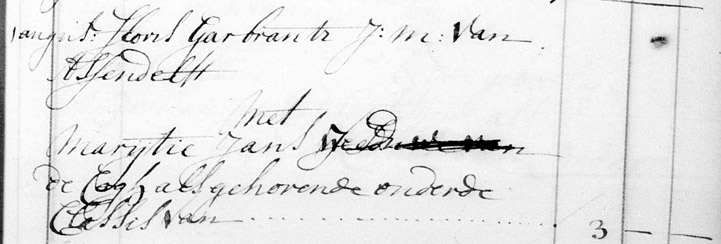 1 august: Floris Garbrantz J: m: van
Assendelft
met
Marytie Jans
de als gehorende onder de
Classis van ..................
3 — —